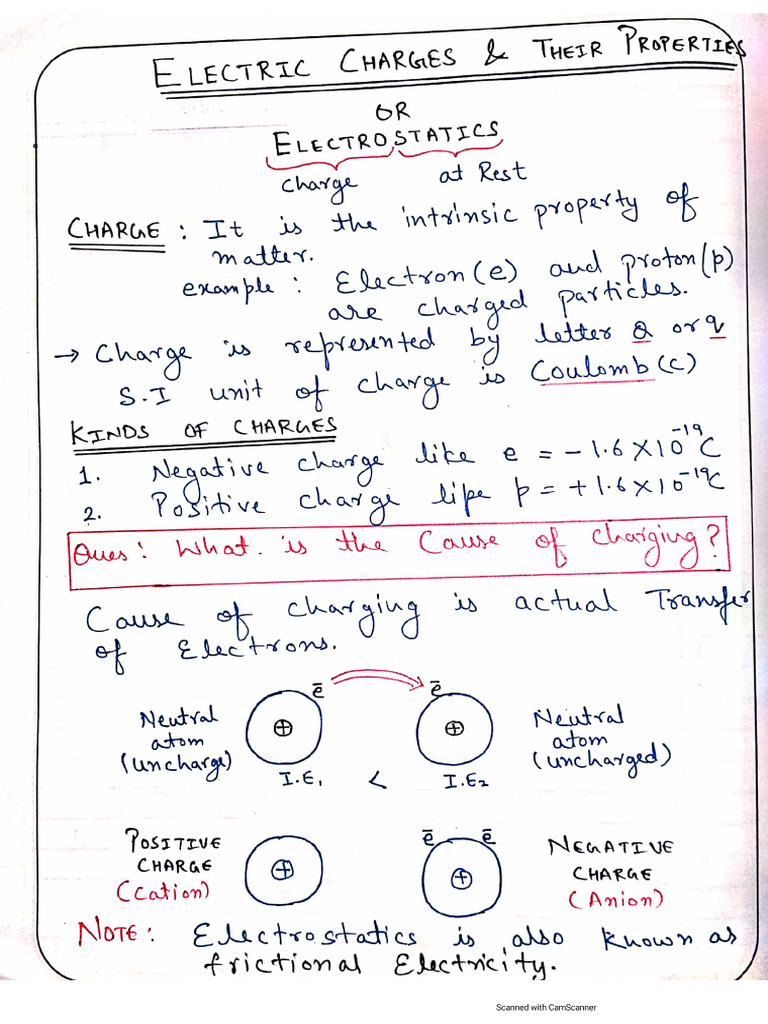 ELECTRIC CHARGES & THEIR PROPERTIES
OR
ELECTROSTATICS
charge at Rest
CHARGE : It is the intrinsic property of
matter.
example : Electron(e) and proton(p)
are charged particles.
→ Charge is represented by letter Q or q
S.I unit of charge is Coulomb(C)
KINDS OF CHARGES
1. Negative charge like e = -1.6×10⁻¹⁹C
2. Positive charge lipe p = +1.6×10⁻¹⁹C
Ques: What is the Cause of charging?
Cause of charging is actual Transfer
of Electrons.
e̅ e̅
Neutral atom (uncharge) + + Neutral atom (uncharged)
I.E₁ < I.E₂
e̅ e̅
POSITIVE CHARGE (Cation) + + NEGATIVE CHARGE (Anion)
NOTE: Electrostatics is also known as
frictional Electricity.
Scanned with CamScanner